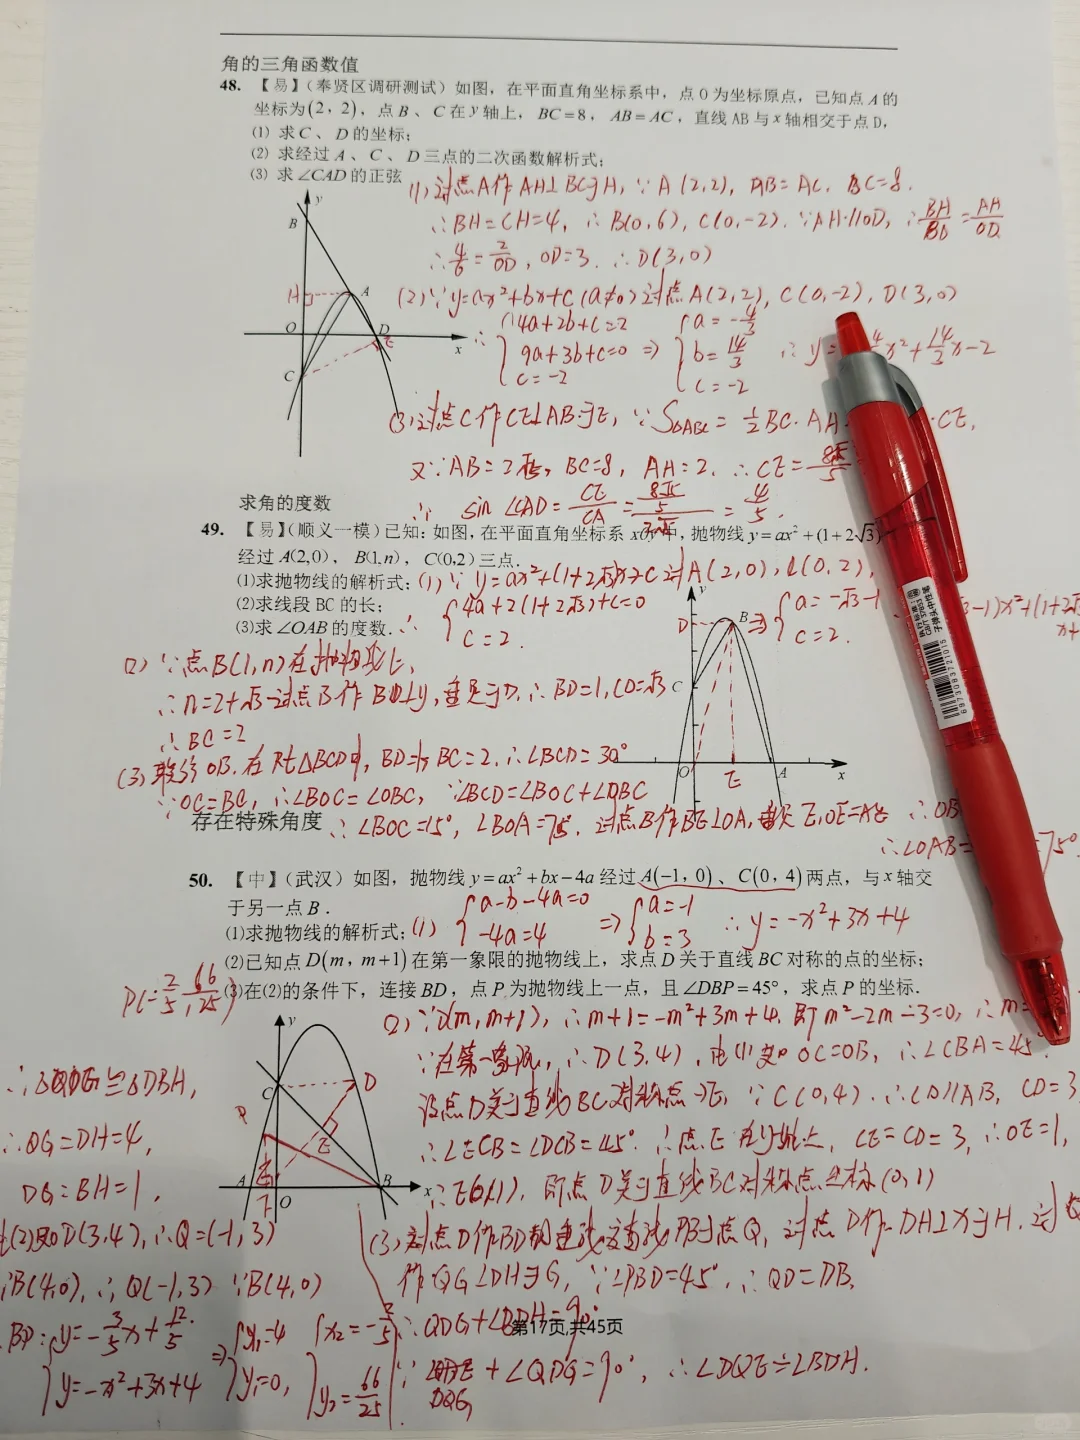 角的三角函数值
48. 【易】(奉贤区调研测试)如图，在平面直角坐标系中，点 O 为坐标原点，已知点 A 的
坐标为(2，2)，点 B 、 C 在 y 轴上， BC=8， AB=AC，直线 AB 与 x 轴相交于点 D，
(1) 求 C 、 D 的坐标；
(2) 求经过 A 、 C 、 D 三点的二次函数解析式；
(3) 求 ∠CAD 的正弦
(1) 过点A作AH⊥BC于H, ∵ A(2,2), AB=AC, BC=8.
∴BH=CH=4, ∴ B(0,6), C(0,-2). ∵AH∥OD, ∴BH/BO=AH/OD
∴4/6=2/OD, OD=3. ∴D(3,0)
(2) ∵y=ax²+bx+c(a≠0)过点A(2,2), C(0,-2), D(3,0)
∴ {4a+2b+c=2 9a+3b+c=0 c=-2 ⇒ {a=-4/3 b=14/3 c=-2 ∴ y= x²+14/3x-2
(3) 过点C作CE⊥AB于E, ∵S△ABC=1/2BC·AH CE,
又∵AB=2√5, BC=8, AH=2. ∴CE=8√5/5
∴ sin∠CAD=CE/CA= =4/5.
B
H
A
O
D
E
x
y
C
求角的度数
49. 【易】(顺义一模)已知：如图，在平面直角坐标系 xOy 中，抛物线 y=ax²+(1+2√3)
经过 A(2,0)， B(1,n)， C(0,2)三点.
(1)求抛物线的解析式；
(2)求线段 BC 的长；
(3)求 ∠OAB 的度数.
(1) ∵ y=ax²+(1+2√3)x+c 过A(2,0), C(0,2),
∴ {4a+2(1+2√3)+c=0 c=2. ⇒ {a=-√3-1 c=2.
(2) ∵点B(1,n)在抛物线上,
∴n=2+√3 过点B作BD⊥y,垂足于D,∴BD=1,CD=√3
∴BC=2
(3) 联结OB. 在Rt△BCD中, BD=1, BC=2. ∴∠BCD=30°
∵OC=BC, ∴∠BOC=∠OBC, ∵∠BCD=∠BOC+∠OBC
y
D
B
C
O
E
A
x
存在特殊角度
∴∠BOC=15°, ∠BOA=75°. 过点B作BE⊥OA,垂足E,OE=AE ∴OB
∴∠OAB= =75°
50. 【中】(武汉)如图，抛物线 y=ax²+bx-4a 经过 A(-1，0)、C(0，4)两点，与 x 轴交
于另一点 B .
(1)求抛物线的解析式；
(1) {a-b-4a=0 -4a=4 ⇒ {a=-1 b=3 ∴y=-x²+3x+4
(2)已知点 D(m，m+1)在第一象限的抛物线上，求点 D 关于直线 BC 对称的点的坐标；
(3)在(2)的条件下，连接 BD，点 P 为抛物线上一点，且 ∠DBP=45°，求点 P 的坐标.
(2) ∵D(m,m+1), ∴m+1=-m²+3m+4. 即m²-2m-3=0, ∴m=
∵在第一象限, ∴D(3,4), 由(1)知OC=OB, ∴∠CBA=45°.
设点D关于直线BC对称点为E, ∵C(0,4). ∴CD∥AB, CD=3
∴∠ECB=∠DCB=45°. ∴点E在y轴上, CE=CD=3, ∴OE=1,
∴E(0,1), 即点D关于直线BC对称点坐标(0,1)
y
C
D
P
E
A
F
O
B
x
(3) 过点D作BD的垂线交直线PB于点Q, 过点D作DH⊥x于H. 过Q
作QG⊥DH于G, ∵∠PBD=45°, ∴QD=DB,
∴QDG+∠BDH=90°
第17页,共45页
∵ DQG+∠QDG=90°, ∴∠DQG=∠BDH.
∴△QDG≌△DBH,
∴QG=DH=4,
DG=BH=1,
(2)知D(3,4), ∴Q=(-1,3)
∵B(4,0), ∴Q(-1,3) ∵B(4,0)
BP: y=-3/5x+12/5.
{y=-x²+3x+4 ⇒ {x₁=4 y₁=0, {x₂=-2/5 y₂=66/25